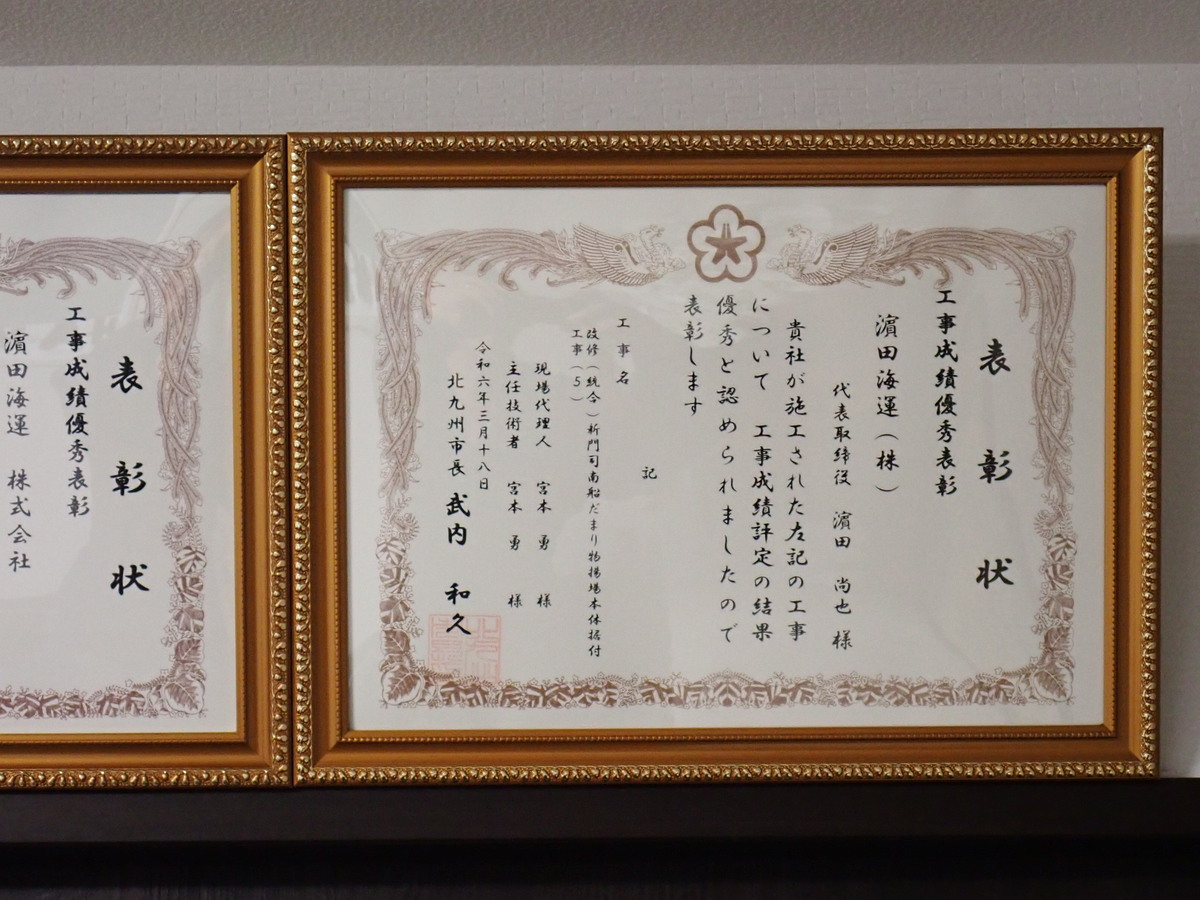 表彰状
工事成績優秀表彰
濵田海運(株)
代表取締役 濵田 尚也 様
貴社が施工された左記の工事
について 工事成績評定の結果
優秀と認められましたので
表彰します
記
工事名
改修(統合)新門司南船だまり物揚場本体据付
工事(5)
現場代理人 宮本 勇 様
主任技術者 宮本 勇 様
令和六年三月十八日
北九州市長 武内 和久
表彰状
工事成績優秀表彰
濵田海運 株式会社